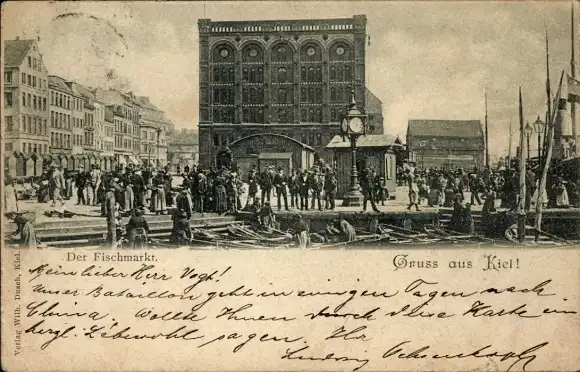 Der Fischmarkt.
Gruss aus Kiel!
Verlag Wilh. Dusch, Kiel.
Mein lieber Herr Vogt!
Unser Bataillon geht in einigen Tagen nach
China. Wollte Ihnen durch diese Karte ein
herzl. Lebewohl sagen. Ihr
Ludwig